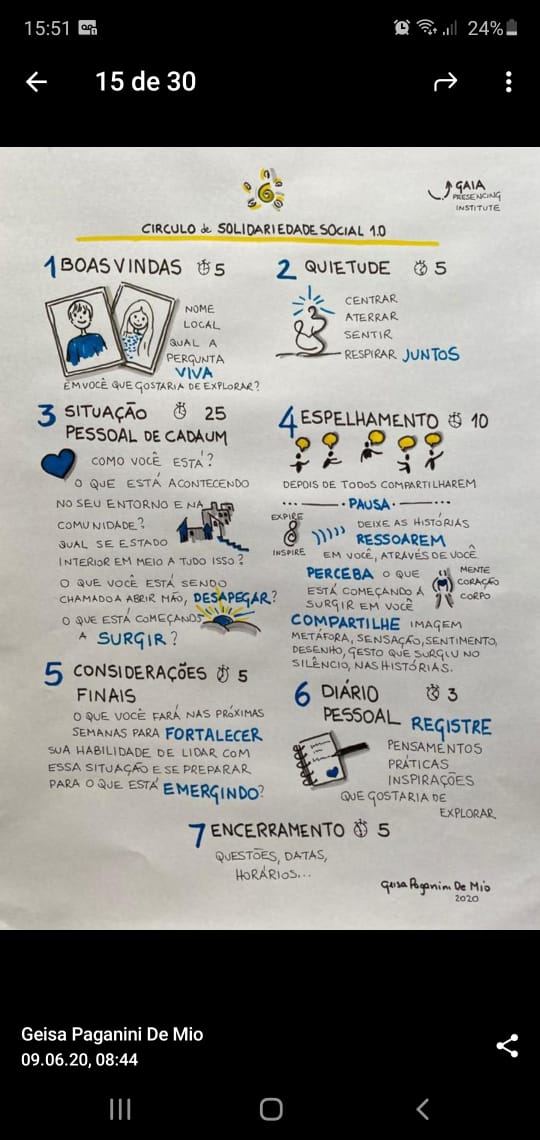 15:51
24%
15 de 30
GAIA
PRESENCING
INSTITUTE
CIRCULO de SOLIDARIEDADE SOCIAL 1.0
1 BOAS VINDAS 5
NOME
LOCAL
QUAL A
PERGUNTA
VIVA
EM VOCÊ QUE GOSTARIA DE EXPLORAR?
2 QUIETUDE 5
CENTRAR
ATERRAR
SENTIR
RESPIRAR JUNTOS
3 SITUAÇÃO 25
PESSOAL DE CADA UM
COMO VOCÊ ESTÁ?
O QUE ESTÁ ACONTECENDO
NO SEU ENTORNO E NA
COMUNIDADE?
QUAL SE ESTADO
INTERIOR EM MEIO A TUDO ISSO?
O QUE VOCÊ ESTÁ SENDO
CHAMADO A ABRIR MÃO, DESAPEGAR?
O QUE ESTÁ COMEÇANDO
A SURGIR?
4 ESPELHAMENTO 10
DEPOIS DE TODOS COMPARTILHAREM
PAUSA
EXPIRE
INSPIRE
DEIXE AS HISTÓRIAS
RESSOAREM
EM VOCÊ, ATRAVÉS DE VOCÊ
PERCEBA O QUE
ESTÁ COMEÇANDO A
SURGIR EM VOCÊ
MENTE
CORAÇÃO
CORPO
COMPARTILHE IMAGEM
METÁFORA, SENSAÇÃO, SENTIMENTO,
DESENHO, GESTO QUE SURGIU NO
SILÊNCIO, NAS HISTÓRIAS.
5 CONSIDERAÇÕES 5
FINAIS
O QUE VOCÊ FARÁ NAS PRÓXIMAS
SEMANAS PARA FORTALECER
SUA HABILIDADE DE LIDAR COM
ESSA SITUAÇÃO E SE PREPARAR
PARA O QUE ESTÁ EMERGINDO?
6 DIÁRIO 3
PESSOAL REGISTRE
PENSAMENTOS
PRÁTICAS
INSPIRAÇÕES
QUE GOSTARIA DE
EXPLORAR
7 ENCERRAMENTO 5
QUESTÕES, DATAS,
HORÁRIOS...
Geisa Paganini De Mio
2020
Geisa Paganini De Mio
09.06.20, 08:44